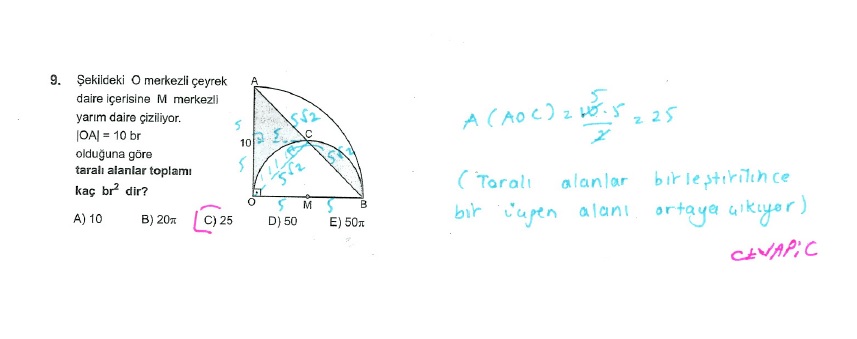 9. Şekildeki O merkezli çeyrek
daire içerisine M merkezli
yarım daire çiziliyor.
|OA| = 10 br
olduğuna göre
taralı alanlar toplamı
kaç br² dir?
A) 10 B) 20π C) 25 D) 50 E) 50π
A
5
10
5
5
5√2
C
5√2
5√2
O
5
M
5
B
A(AOC) = 10.5 = 25
5
2
(Taralı alanlar birleştirilince
bir üçgen alanı ortaya çıkıyor)
CEVAP: C